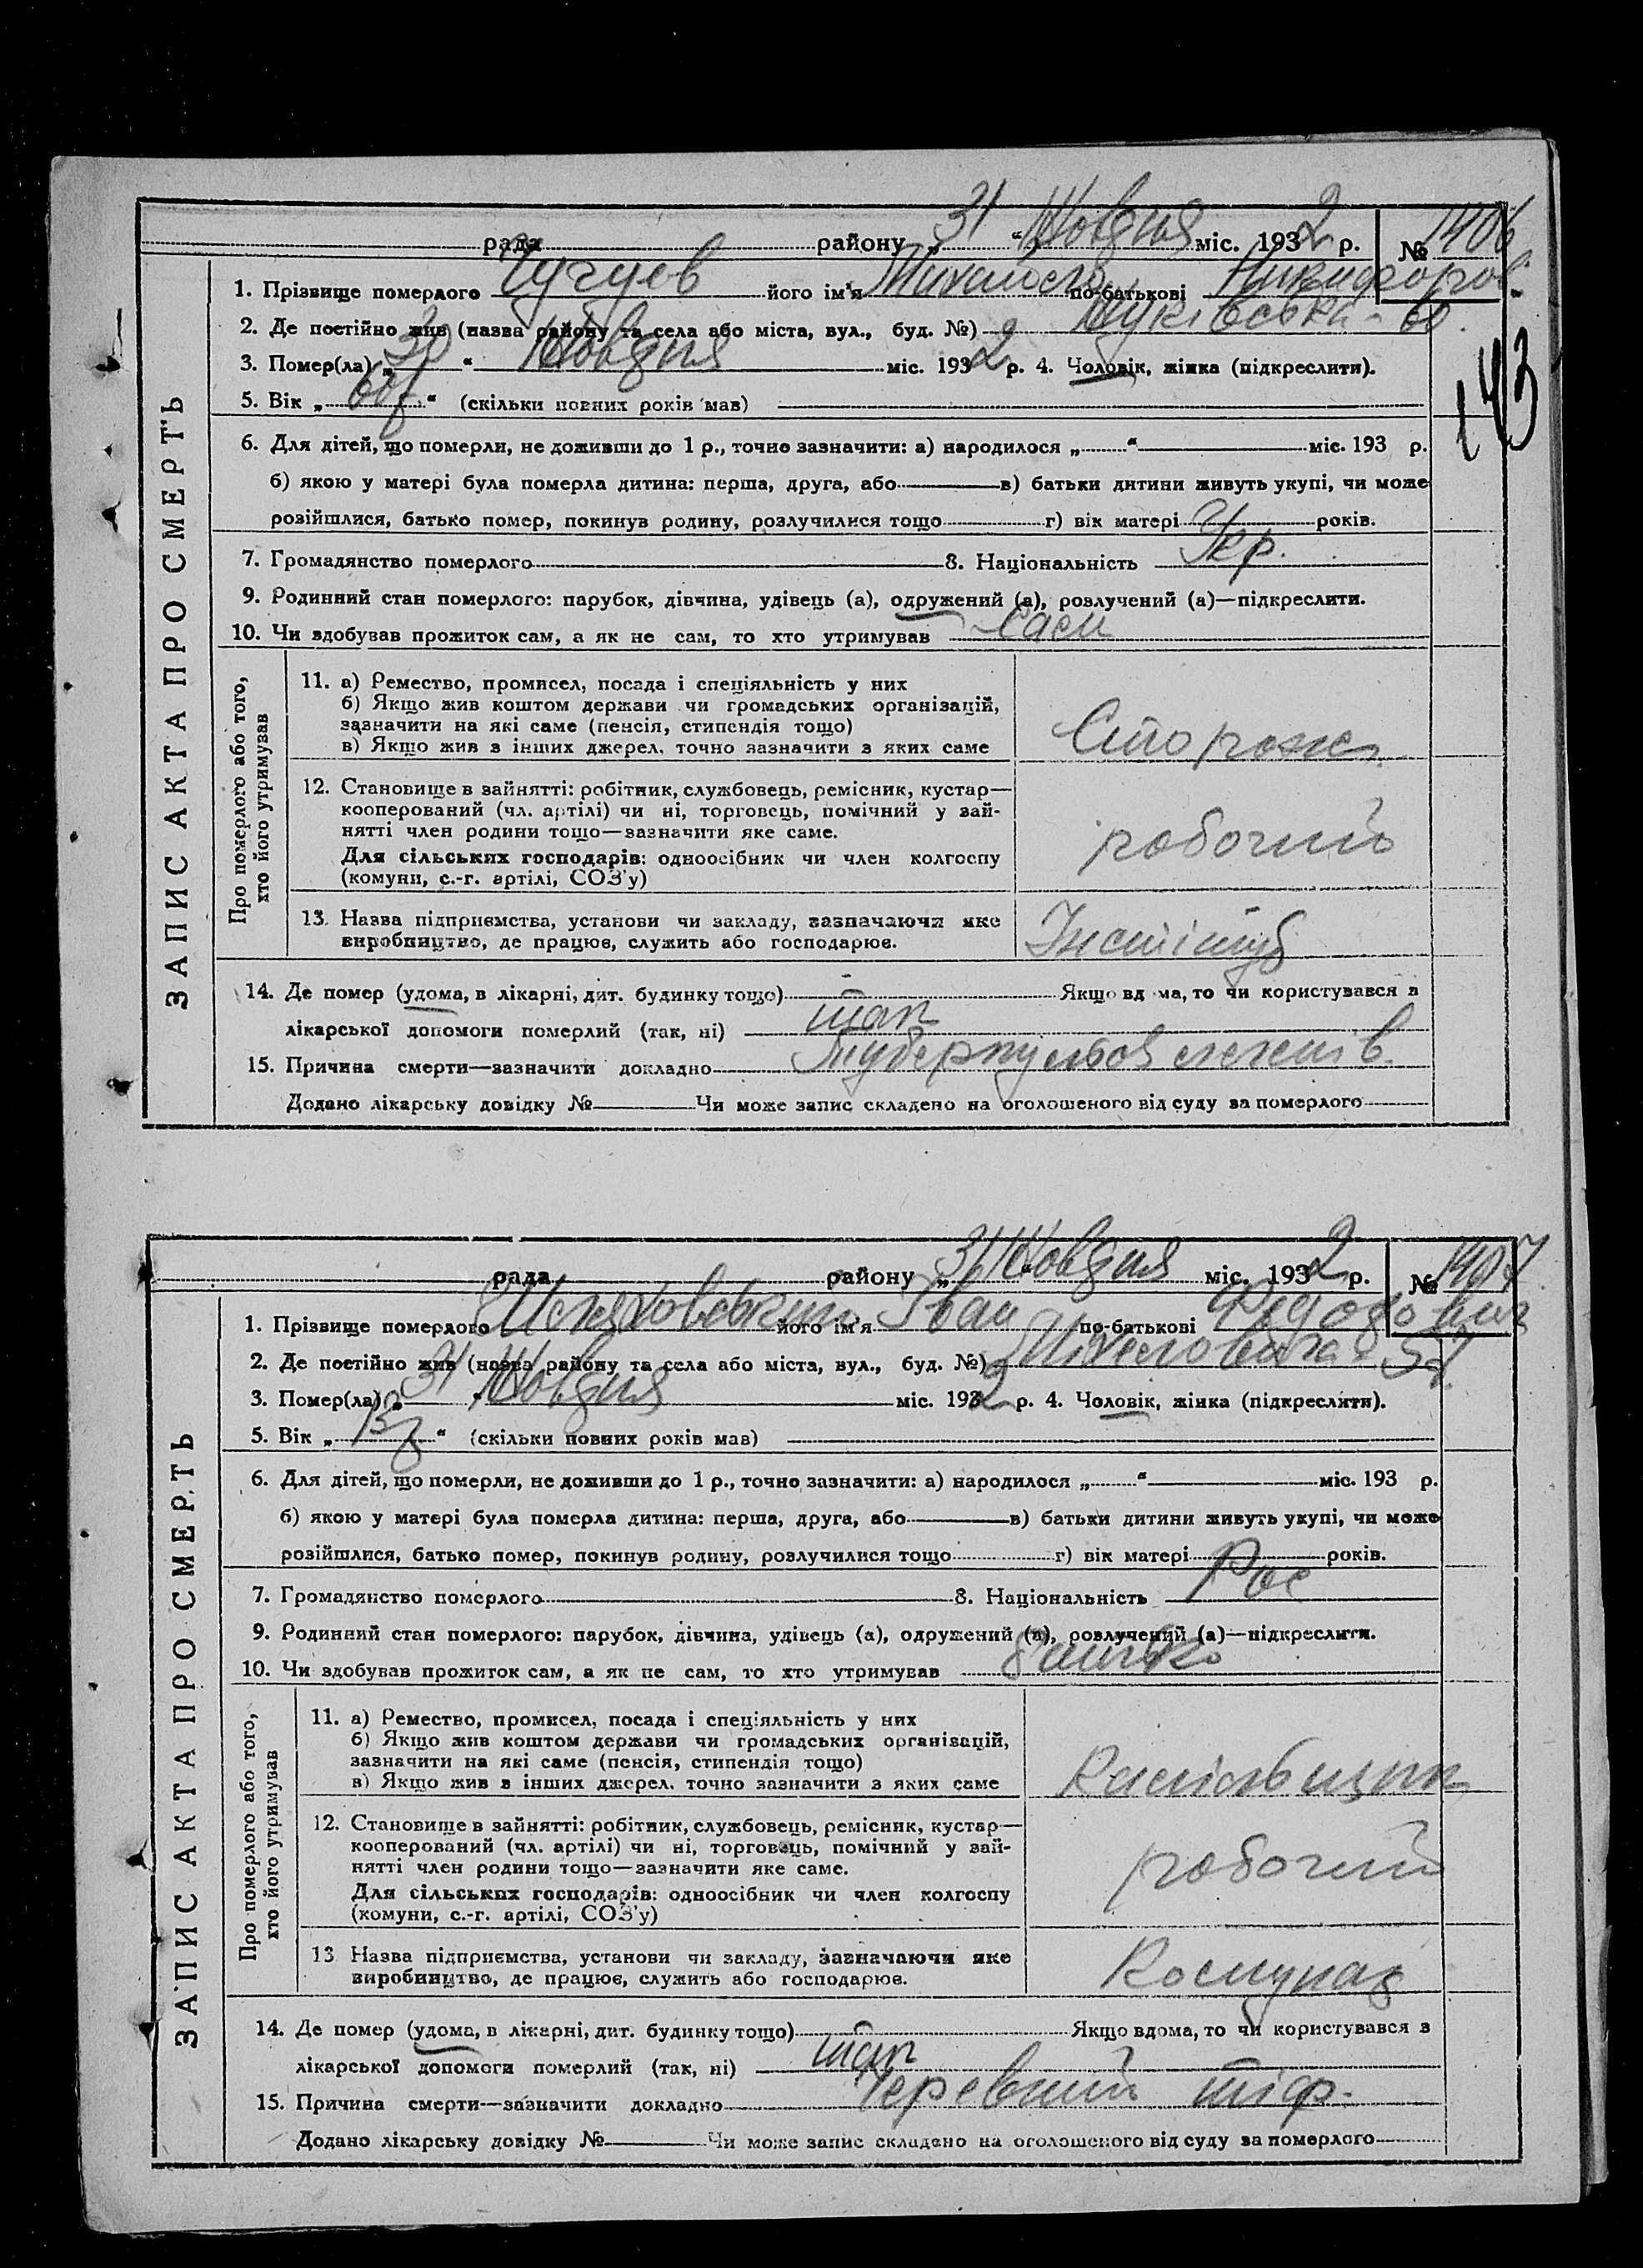 рада района „ 31 “ Жовдня міс. 1932 р. № 1406
1. Прізвище померлого Чугуев його ім'я Михайло по-батькові Никифоров.
2. Де постійно жив (назва району та села або міста, вул., буд. №) 60.
3. Помер(ла) „ 30 “ Жовдня міс. 1932 р. 4. Чоловік, жінка (підкреслити).
5. Вік „ 60 р “ (скільки повних років мав)
143
6. Для дітей, що померли, не доживши до 1 р., точно зазначити: а) народилося „ “ міс. 193 р.
б) якою у матері була померла дитина: перша, друга, або в) батьки дитини живуть укупі, чи може
розійшлися, батько помер, покинув родину, розлучилися тощо г) вік матері років.
7. Громадянство померлого 8. Національність Укр.
9. Родинний стан померлого: парубок, дівчина, удівець (а), одружений (а), розлучений (а)—підкреслити.
10. Чи здобував прожиток сам, а як не сам, то хто утримував Сам
ЗАПИС АКТА ПРО СМЕРТЬ
Про померлого або того,
хто його утримував
11. а) Ремество, промисел, посада і спеціяльність у них
б) Якщо жив коштом держави чи громадських організацій,
зазначити на які саме (пенсія, стипендія тощо)
в) Якщо жив з інших джерел, точно зазначити з яких саме
Сторож
12. Становище в зайнятті: робітник, службовець, ремісник, кустар—
кооперований (чл. артілі) чи ні, торговець, помічний у зай-
нятті член родини тощо—зазначити яке саме.
Для сільських господарів: одноосібник чи член колгоспу
(комуни, с.-г. артілі, СОЗ'у)
робочий
13. Назва підприємства, установи чи закладу, зазначаючи яке
виробництво, де працює, служить або господарює.
Інстітут
14. Де помер (удома, в лікарні, дит. будинку тощо) Якщо вдома, то чи користувався з
лікарської допомоги померлий (так, ні) так
15. Причина смерти—зазначити докладно Туберкульоз легенів.
Додано лікарську довідку № Чи може запис складено на оголошеного від суду за померлого
рада району „ 31 “ Жовдня міс. 1932 р. № 1407
1. Прізвище померлого його ім'я Іван по-батькові Федорович
2. Де постійно жив (назва району та села або міста, вул., буд. №)
3. Помер(ла) „ 31 “ Жовдня міс. 1932 р. 4. Чоловік, жінка (підкреслити).
5. Вік „ 13 р “ (скільки повних років мав)
6. Для дітей, що померли, не доживши до 1 р., точно зазначити: а) народилося „ “ міс. 193 р.
б) якою у матері була померла дитина: перша, друга, або в) батьки дитини живуть укупі, чи може
розійшлися, батько помер, покинув родину, розлучилися тощо г) вік матері років.
7. Громадянство померлого 8. Національність Рос
9. Родинний стан померлого: парубок, дівчина, удівець (а), одружений (а), розлучений (а)—підкреслити.
10. Чи здобував прожиток сам, а як не сам, то хто утримував батько
ЗАПИС АКТА ПРО СМЕРТЬ
Про померлого або того,
хто його утримував
11. а) Ремество, промисел, посада і спеціяльність у них
б) Якщо жив коштом держави чи громадських організацій,
зазначити на які саме (пенсія, стипендія тощо)
в) Якщо жив з інших джерел, точно зазначити з яких саме
12. Становище в зайнятті: робітник, службовець, ремісник, кустар—
кооперований (чл. артілі) чи ні, торговець, помічний у зай-
нятті член родини тощо—зазначити яке саме.
Для сільських господарів: одноосібник чи член колгоспу
(комуни, с.-г. артілі, СОЗ'у)
робочий
13. Назва підприємства, установи чи закладу, зазначаючи яке
виробництво, де працює, служить або господарює.
14. Де помер (удома, в лікарні, дит. будинку тощо) Якщо вдома, то чи користувався з
лікарської допомоги померлий (так, ні) так
15. Причина смерти—зазначити докладно Черевний тіф.
Додано лікарську довідку № Чи може запис складено на оголошеного від суду за померлого